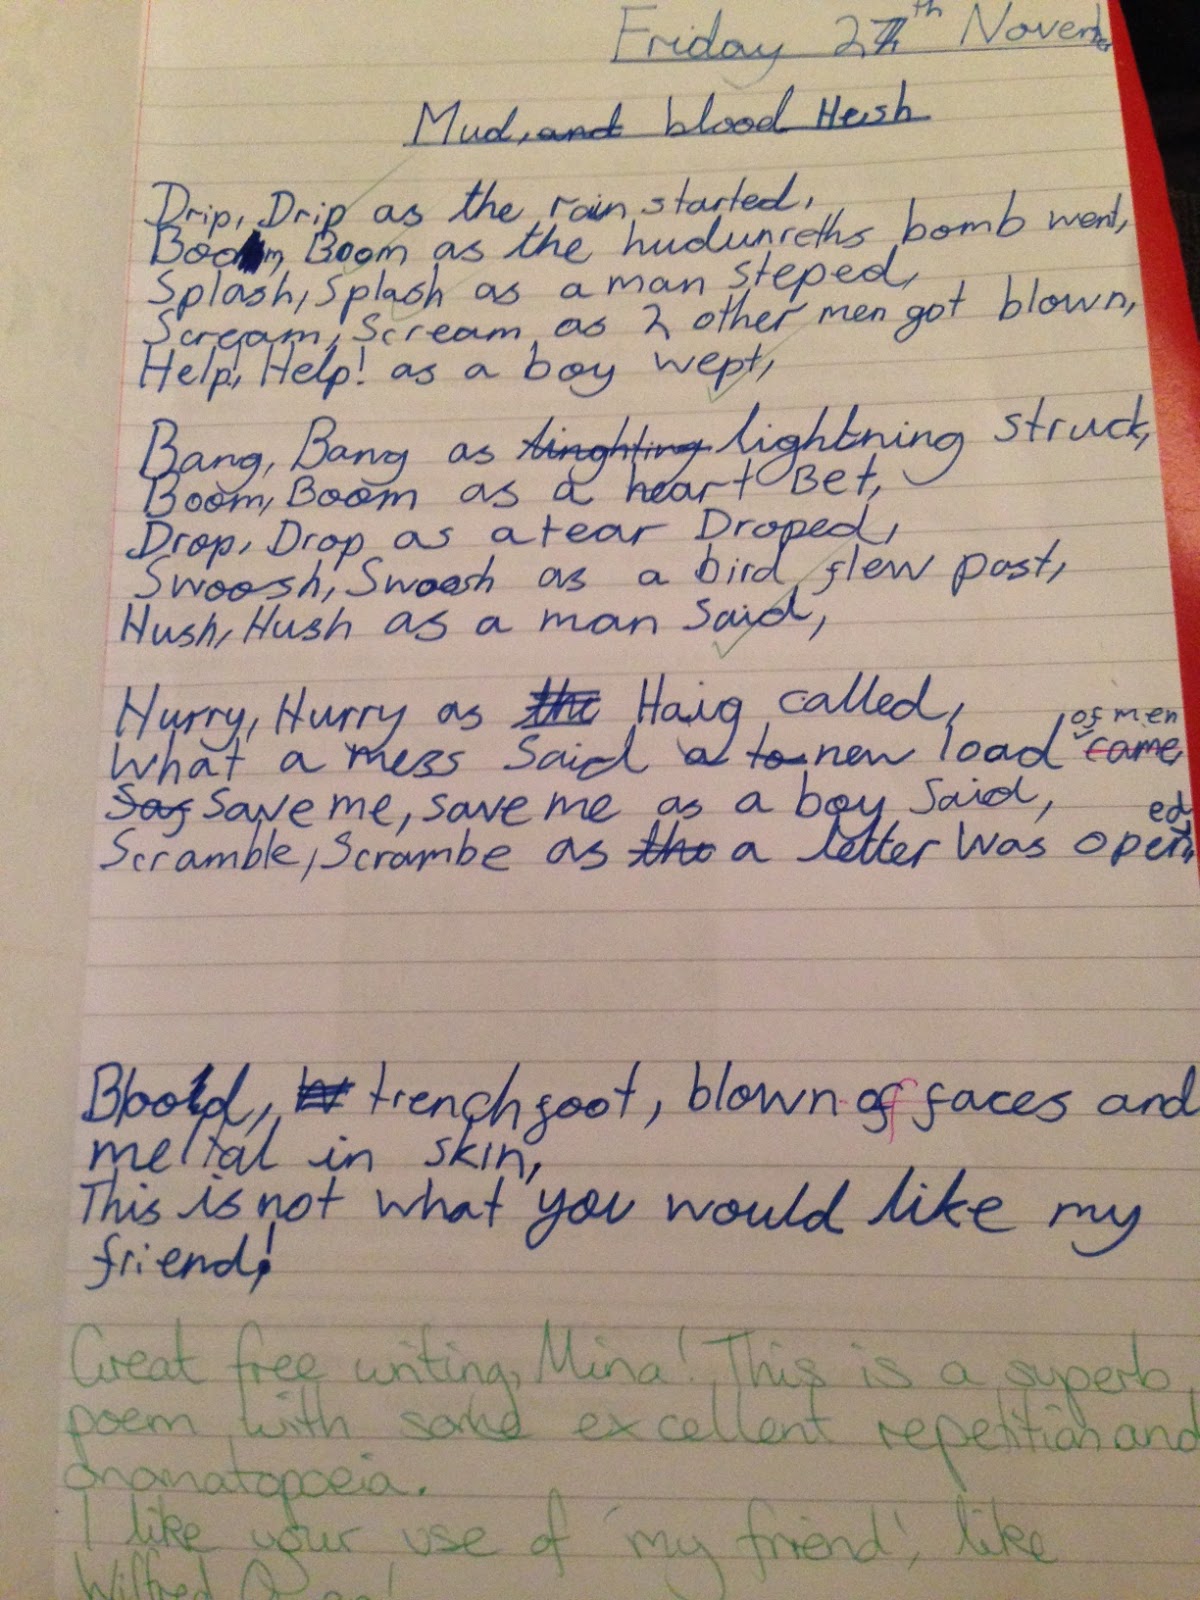 Friday 27th Novem
Mud, and blood Hesh
Drip, Drip as the rain started,
Boom, Boom as the hudunreths bomb went,
Splash, Splash as a man steped,
Scream, Scream as 2 other men got blown,
Help!, Help! as a boy wept,
Bang, Bang as linghting lightning struck,
Boom, Boom as a heart Bet,
Drop, Drop as a tear Droped,
Swoosh, Swoosh as a bird flew past,
Hush, Hush as a man Said,
Hurry, Hurry as the Haig called,
What a mess Said a to new load of men came
Sas Save me, save me as a boy Said,
Scramble, Scrambe as the a letter Was opened,
Blood, trenchfoot, blown of faces and
meltal in skin,
This is not what you would like my
friend!
Great free writing, Mina! This is a superb
poem with some excellent repetition and
onomatopoeia.
I like your use of 'my friend', like
Wilfred Owen!